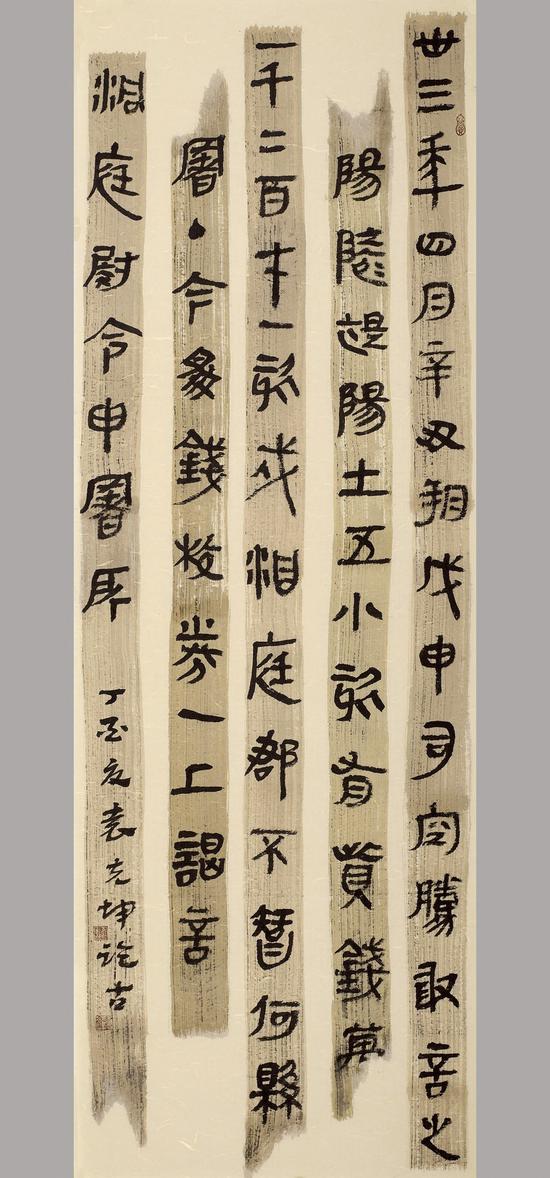 卅三年四月辛丑朔戊申司空騰敢言之
陽陵褆陽士五小欬有貲錢萬
一千二百七十一欬戍洞庭郡不智何縣
署·今為錢校券一上謁言
洞庭尉令申署所
丁酉夏袁克坤 古